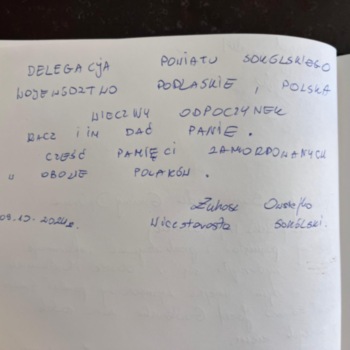 DELEGACJA POWIATU SOKÓLSKIEGO
WOJEWÓDZTWO PODLASKIE, POLSKA
WIECZNY ODPOCZYNEK
RACZ IM DAĆ PANIE.
CZEŚĆ PAMIĘCI ZAMORDOWANYCH
W OBOZIE POLAKÓW.
09.10.2024r.
Wicestarosta SOKÓLSKI.